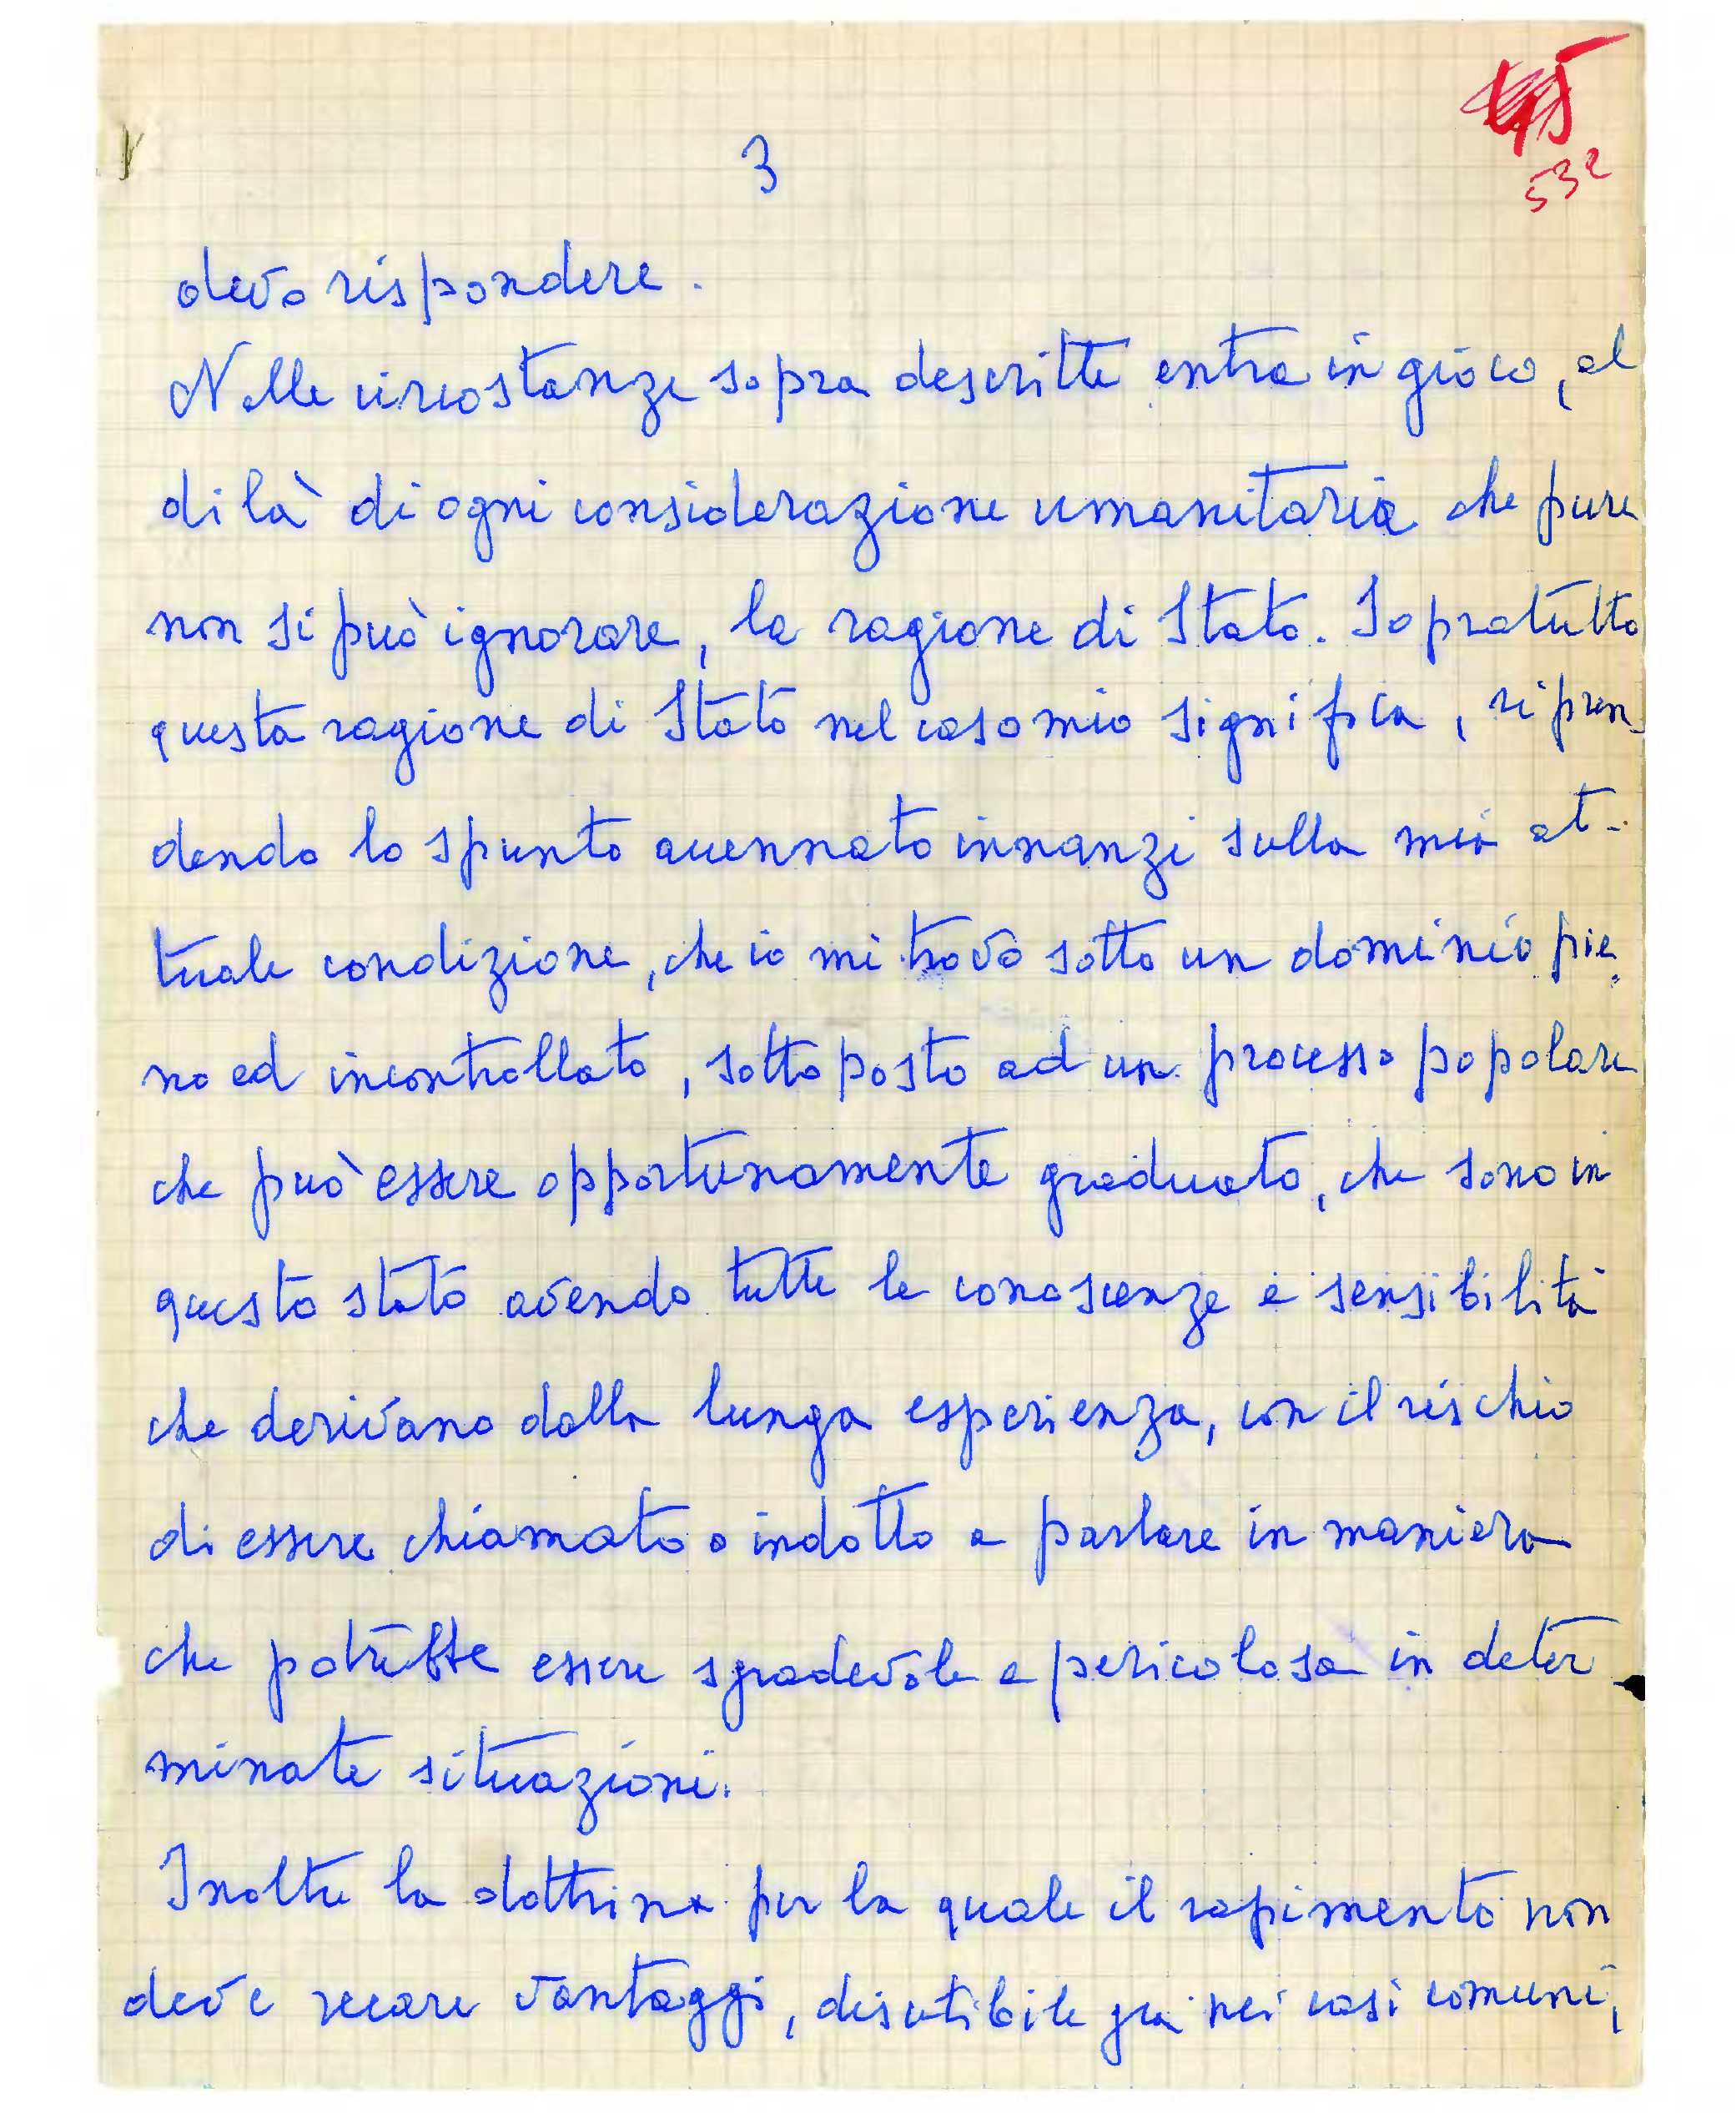 3
532
devo rispondere.
Nelle circostanze sopra descritte entra in gioco, al
di là di ogni considerazione umanitaria che pure
non si può ignorare, la ragione di Stato. Sopratutto
questa ragione di Stato nel caso mio significa, ripren
dendo lo spunto accennato innanzi sulla mia at-
tuale condizione, che io mi trovo sotto un dominio pie
no ed incontrollato, sottoposto ad un processo popolare
che può essere opportunamente graduato, che sono in
questo stato avendo tutte le conoscenze e sensibilità
che derivano dalla lunga esperienza, con il rischio
di essere chiamato o indotto a parlare in maniera
che potrebbe essere sgradevole e pericolosa in deter
minate situazioni.
Inoltre la dottrina per la quale il rapimento non
deve recare vantaggi, discutibile già nei casi comuni,